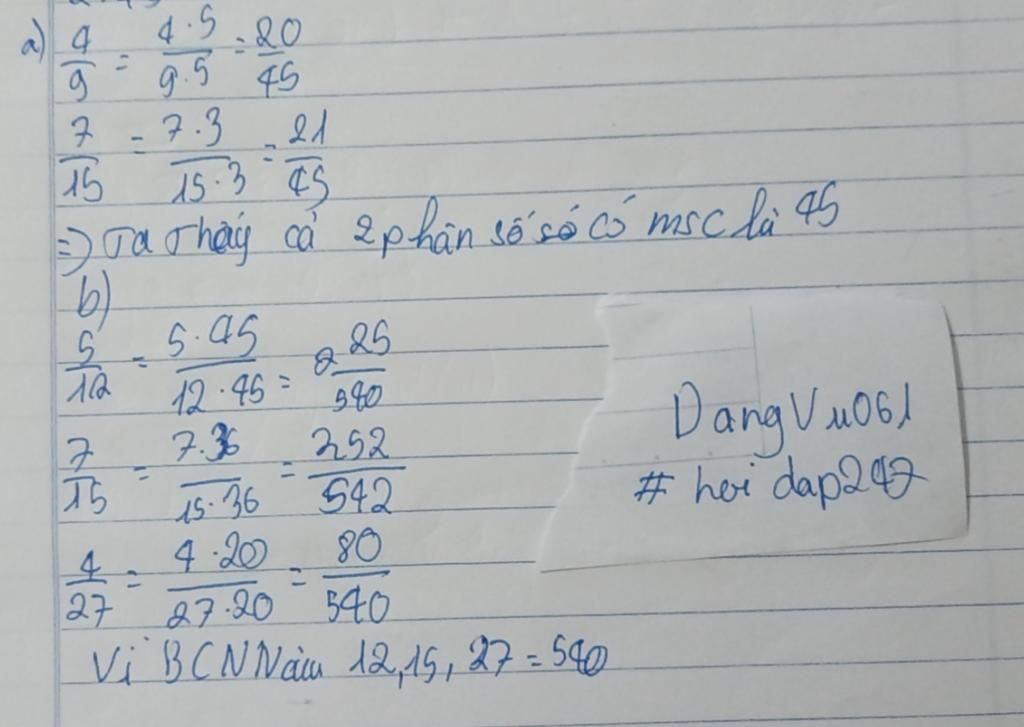 a) 4/9 = 4·5/9·5 = 20/45
7/15 = 7·3/15·3 = 21/45
=) Ta thấy cả 2 phân số số có msc là 45
b)
5/12 = 5·45/12·45 = 225/540
7/15 = 7·36/15·36 = 252/542
4/27 = 4·20/27·20 = 80/540
Vì BCNN của 12, 15, 27 = 540
DangVu061
# hoi dap247